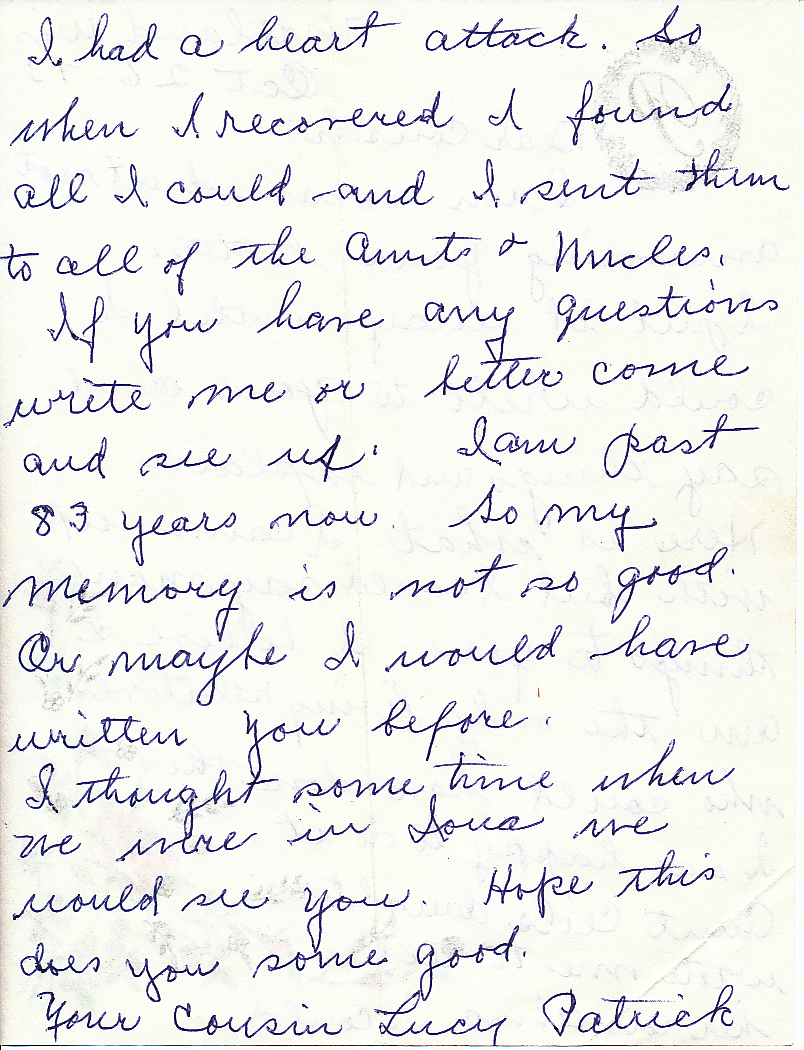 I had a heart attack. So
when I recovered I found
all I could and I sent them
to all of the Aunts & Uncles.
If you have any questions
write me or better come
and see us. I am past
83 years now. So my
memory is not so good.
Or maybe I would have
written you before.
I thought some time when
we were in Iowa we
would see you. Hope this
does you some good.
Your Cousin Lucy Patrick